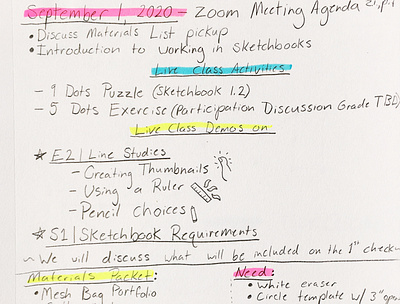 September 1, 2020 - Zoom Meeting Agenda
• Discuss Materials List pickup
• Introduction to working in sketchbooks
Live Class Activities
- 9 Dots Puzzle (Sketchbook 1.2)
- 5 Dots Exercise (Participation Discussion Grade TBD
Live Class Demos on
☆ E2 | Line Studies
- Creating Thumbnails
- Using a Ruler
- Pencil Choices
☆ S1 | Sketchbook Requirements
~ We will discuss what will be included on the 1st check-
Materials Packet:
• Mesh Bag Portfolio
Need:
• White eraser
• Circle template w/ 3"